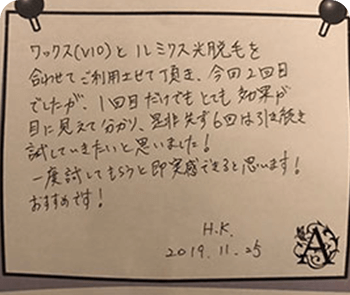 ワックス(VIO)とルミクス光脱毛を
合わせてご利用させて頂き、今回2回目
でしたが、1回目だけでもとても効果が
目に見えて分かり、是非先ず6回は引き続き
試していきたいと思いました!
一度試してもらうと即実感できると思います!
おすすめです!
H.K.
2019.11.25
A